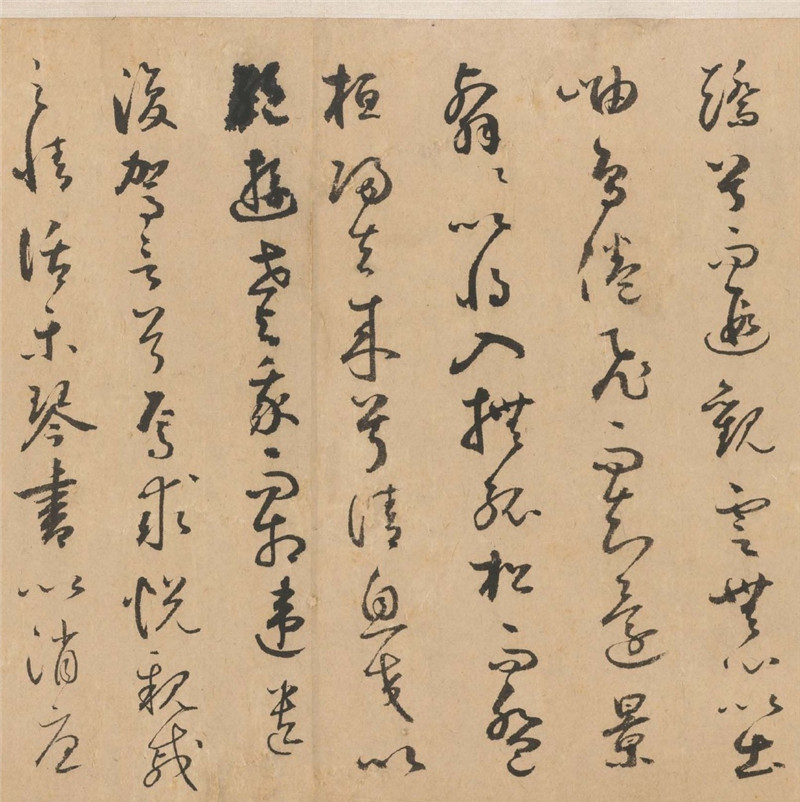 矯首而遐觀雲無心以出
岫鳥倦飛而知還景
翳〻以將入撫孤松而盤
桓歸去來兮請息交以
絕遊世與我而相違遺
復駕言兮焉求悅親戚
之情話樂琴書以消憂